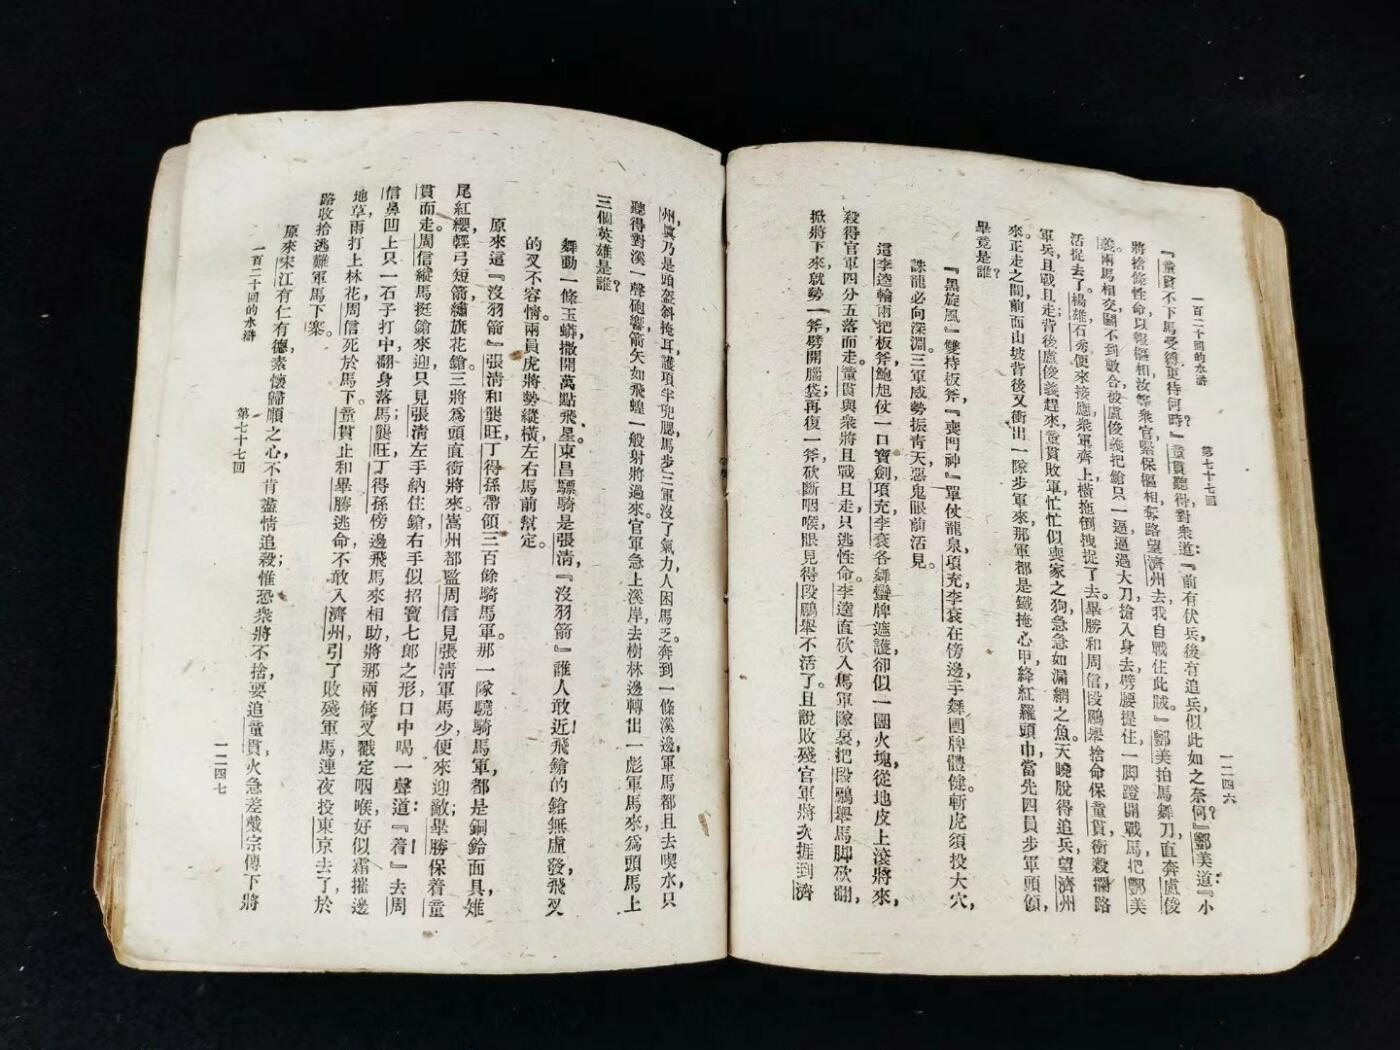 一百二十回的水滸　第七十七回　一二四六
『童貫不下馬受縛更待何時？』童貫聽得對衆道：『前有伏兵，後有追兵，似此如之奈何？』酆美道：『小
將捨條性命，以報樞相。汝等衆官，緊保樞相，奪路望濟州去，我自戰住此賊。』酆美拍馬舞刀，直奔盧俊
義。兩馬相交，鬭不到數合，被盧俊義把鎗只一逼，逼過大刀，搶入身去，劈腰提住，一脚蹬開戰馬，把酆美
活捉去了。楊雄石秀便來接應，衆軍齊上，橫拖倒拽捉了去。畢勝和周信段鵬舉捨命保童貫，衝殺攔路
軍兵，且戰且走。背後盧俊義趕來，童貫敗軍忙忙似喪家之狗，急急如漏網之魚。天曉脫得追兵，望濟州
來。正走之間，前面山坡背後又衝出一隊步軍來，那軍都是鐵掩心甲，絳紅羅頭巾，當先四員步軍頭領，
畢竟是誰？
『黑旋風』雙持板斧，『喪門神』單仗龍泉，項充李袞在傍邊，手舞團牌體健。斬虎須投大穴，
誅龍必向深淵。三軍威勢振青天，惡鬼眼前活見。
這李逵輪兩把板斧，鮑旭仗一口寶劍，項充李袞各舞蠻牌遮護，卻似一團火塊，從地皮上滾將來，
殺得官軍四分五落而走。童貫與衆將且戰且走，只逃性命。李逵直砍入馬軍隊裏，把段鵬舉馬脚砍翻，
掀將下來，就勢一斧，劈開腦袋，再復一斧，砍斷咽喉，眼見得段鵬舉不活了。且說敗殘官軍將次捱到濟
州，眞乃是頭盔斜掩耳，護項半兜腮，馬步三軍沒了氣力，人困馬乏。奔到一條溪邊，軍馬都且去喫水，只
聽得對溪一聲砲響，箭矢如飛蝗一般射將過來。官軍急上溪岸，去樹林邊轉出一彪軍馬來，爲頭馬上
三個英雄是誰？
舞動一條玉蟒，撒開萬點飛星。東昌驃騎是張淸，『沒羽箭』誰人敢近！飛鎗的鎗無虛發，飛叉
的叉不容情。兩員虎將勢縱橫，左右馬前幫定。
原來這『沒羽箭』張淸和龔旺，丁得孫帶領三百餘騎馬軍。那一隊驍騎馬軍都是銅鈴面具，雉
尾紅纓，輕弓短箭，繡旗花鎗。三將爲頭直衝將來。嵩州都監周信見張淸軍馬少，便來迎敵；畢勝保着童
貫而走。周信縱馬挺鎗來迎，只見張淸左手納住鎗，右手似招寶七郎之形，口中喝一聲道：『着！』去周
信鼻凹上只一石子打中，翻身落馬；龔旺丁得孫傍邊飛馬來相助，將那兩條叉戳定咽喉，好似霜摧邊
地草，雨打上林花。周信死於馬下。童貫止和畢勝逃命，不敢入濟州，引了敗殘軍馬，連夜投東京去了，於
路收拾逃難軍馬下寨。
原來宋江有仁有德，素懷歸順之心，不肯盡情追殺；惟恐衆將不捨，要追童貫，火急差戴宗傳下將
一百二十回的水滸　第七十七回　一二四七